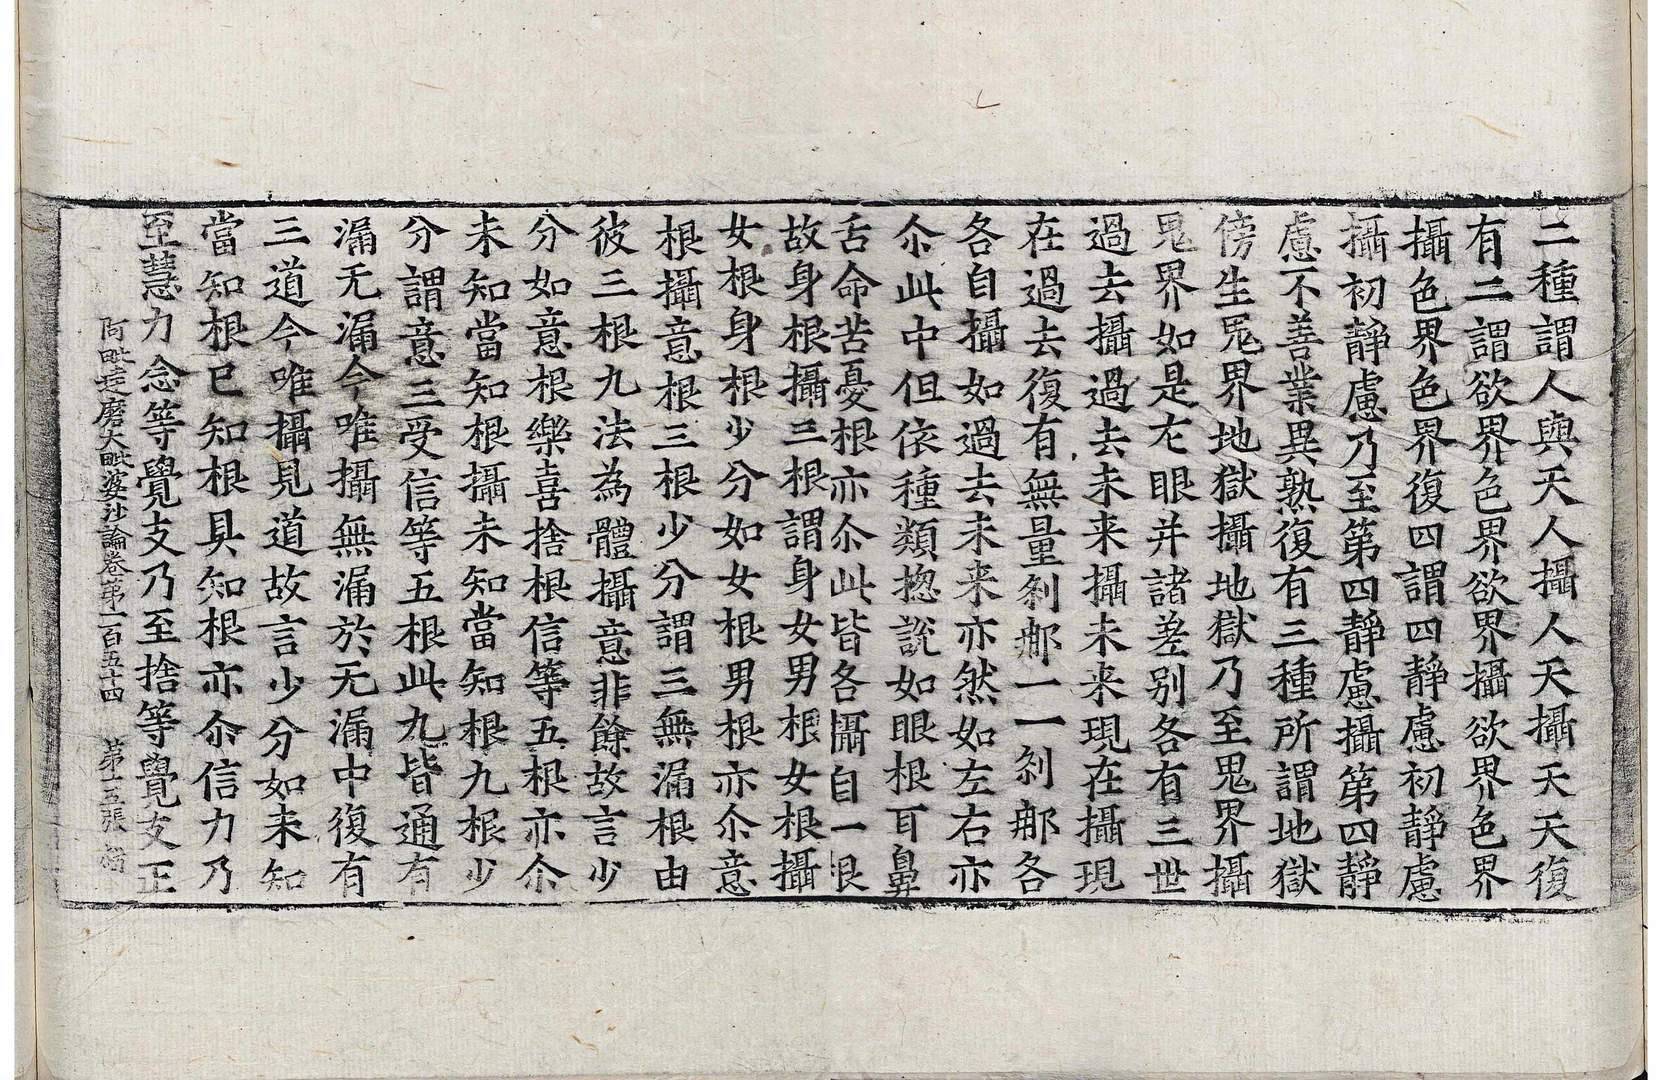 二種謂人與天人攝人天攝天天復
有二謂欲界色界欲界攝欲界色界
攝色界色界復四謂四靜慮初靜慮
攝初靜慮乃至第四靜慮攝第四靜
慮不善業異熟復有三種所謂地獄
傍生鬼界地獄攝地獄乃至鬼界攝
鬼界如是左眼并諸差别各有三世
過去攝過去未来攝未来現在攝現
在過去復有無量刹那一一刹那各
各自攝如過去未来亦然如左右亦
尒此中但依種類揔說如眼根耳鼻
舌命苦憂根亦尒此皆各攝自一根
故身根攝三根謂身女男根女根攝
女根身根少分如女根男根亦尒意
根攝意根三根少分謂三無漏根由
彼三根九法為體攝意非餘故言少
分如意根樂喜捨根信等五根亦尒
未知當知根攝未知當知根九根少
分謂意三受信等五根此九皆通有
漏无漏今唯攝無漏於无漏中復有
三道今唯攝見道故言少分如未知
當知根已知根具知根亦尒信力乃
至慧力念等覺支乃至捨等覺支正
阿毗達磨大毗婆沙論卷第一百五十四 第十五張